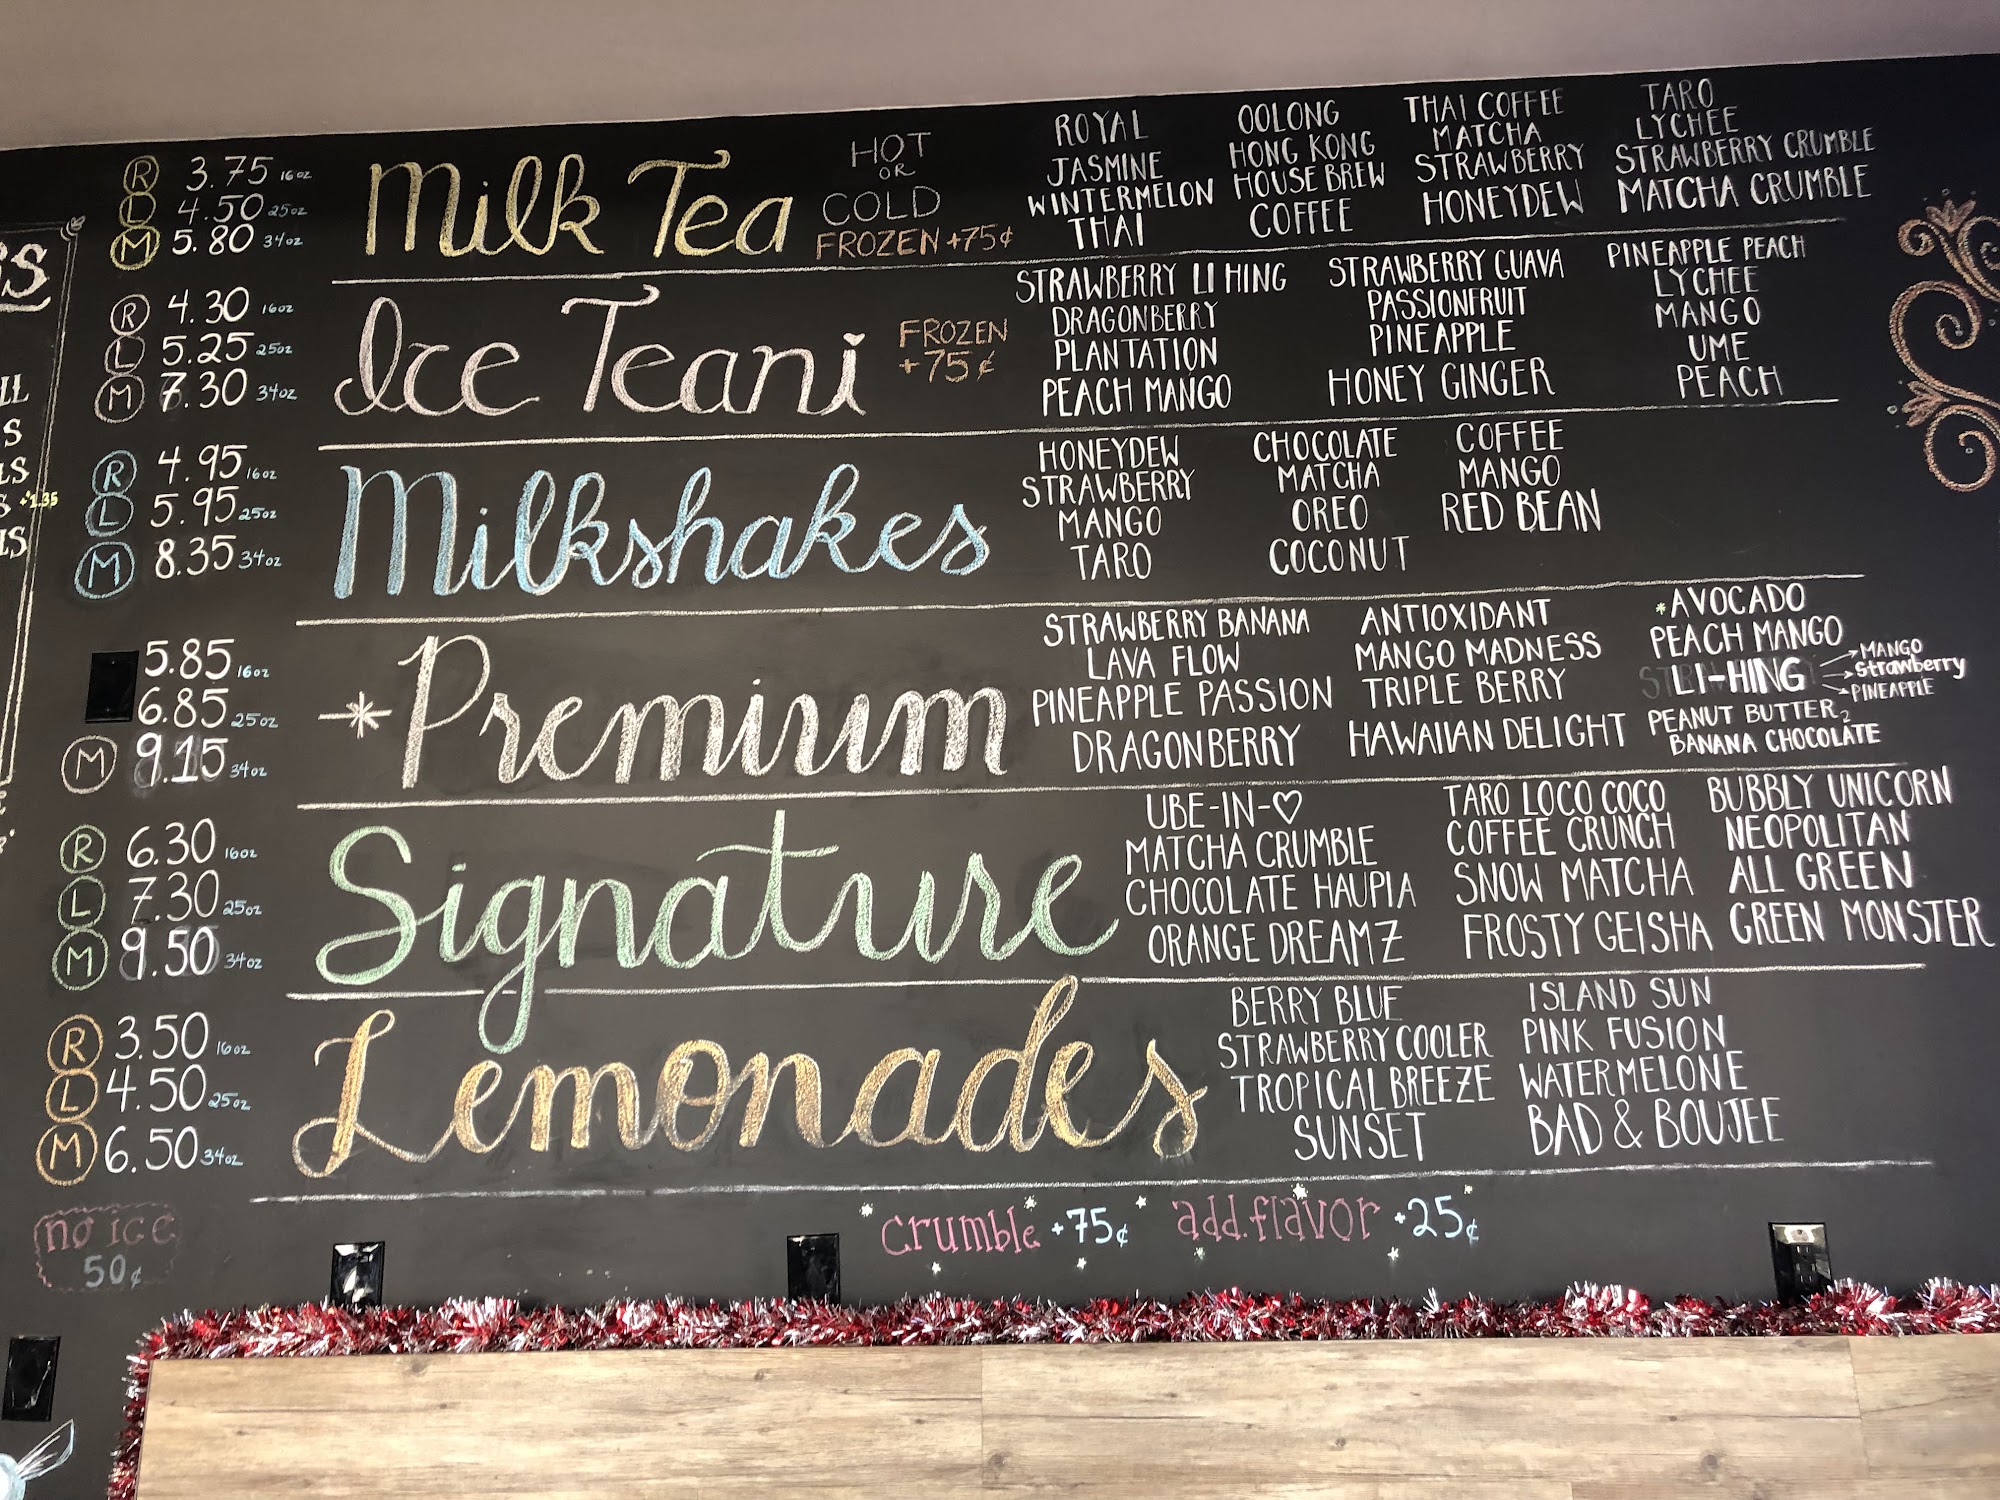 R 3.75 16oz
L 4.50 25oz
M 5.80 34oz
Milk Tea
HOT
OR
COLD
FROZEN +75¢
ROYAL
JASMINE
WINTERMELON
THAI
OOLONG
HONG KONG
HOUSE BREW
COFFEE
THAI COFFEE
MATCHA
STRAWBERRY
HONEYDEW
TARO
LYCHEE
STRAWBERRY CRUMBLE
MATCHA CRUMBLE
R 4.30 16oz
L 5.25 25oz
M 7.30 34oz
Ice Teani
FROZEN
+75¢
STRAWBERRY LI HING
DRAGONBERRY
PLANTATION
PEACH MANGO
STRAWBERRY GUAVA
PASSIONFRUIT
PINEAPPLE
HONEY GINGER
PINEAPPLE PEACH
LYCHEE
MANGO
UME
PEACH
R 4.95 16oz
L 5.95 25oz
M 8.35 34oz
Milkshakes
HONEYDEW
STRAWBERRY
MANGO
TARO
CHOCOLATE
MATCHA
OREO
COCONUT
COFFEE
MANGO
RED BEAN
5.85 16oz
6.85 25oz
M 9.15 34oz
*Premium
STRAWBERRY BANANA
LAVA FLOW
PINEAPPLE PASSION
DRAGONBERRY
ANTIOXIDANT
MANGO MADNESS
TRIPLE BERRY
HAWAIIAN DELIGHT
*AVOCADO
PEACH MANGO
LI-HING
MANGO
Strawberry
PINEAPPLE
PEANUT BUTTER
BANANA CHOCOLATE
R 6.30 16oz
L 7.30 25oz
M 9.50 34oz
Signature
UBE-IN-♡
MATCHA CRUMBLE
CHOCOLATE HAUPIA
ORANGE DREAMZ
TARO LOCO COCO
COFFEE CRUNCH
SNOW MATCHA
FROSTY GEISHA
BUBBLY UNICORN
NEOPOLITAN
ALL GREEN
GREEN MONSTER
R 3.50 16oz
L 4.50 25oz
M 6.50 34oz
Lemonades
BERRY BLUE
STRAWBERRY COOLER
TROPICAL BREEZE
SUNSET
ISLAND SUN
PINK FUSION
WATERMELONE
BAD & BOUJEE
no ICE
50¢
crumble +75¢ add.flavor +25¢
+$1.35